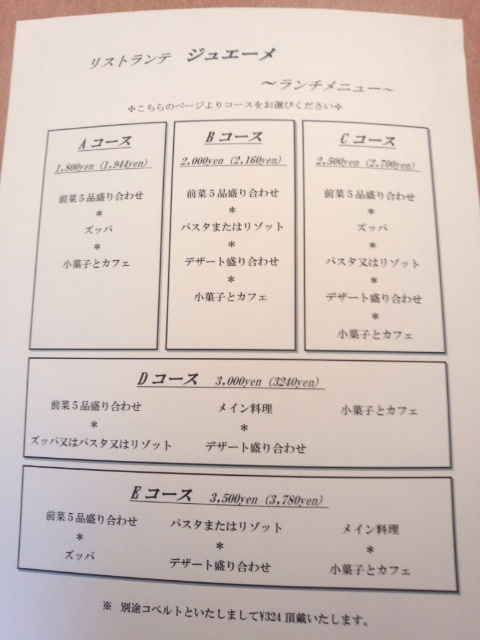 リストランテ ジュエーメ
～ランチメニュー～
✣こちらのページよりコースをお選びください✣
Aコース
1,800yen (1,944yen)
前菜５品盛り合わせ
＊
ズッパ
＊
小菓子とカフェ
Bコース
2,000yen (2,160yen)
前菜５品盛り合わせ
＊
パスタまたはリゾット
＊
デザート盛り合わせ
＊
小菓子とカフェ
Cコース
2,500yen (2,700yen)
前菜５品盛り合わせ
＊
ズッパ
＊
パスタ又はリゾット
＊
デザート盛り合わせ
＊
小菓子とカフェ
Dコース 3,000yen (3240yen)
前菜５品盛り合わせ
＊
ズッパ又はパスタ又はリゾット
メイン料理
＊
デザート盛り合わせ
小菓子とカフェ
Eコース 3,500yen (3,780yen)
前菜５品盛り合わせ
＊
ズッパ
パスタまたはリゾット
＊
デザート盛り合わせ
メイン料理
＊
小菓子とカフェ
※ 別途コペルトといたしまして¥324 頂戴いたします。